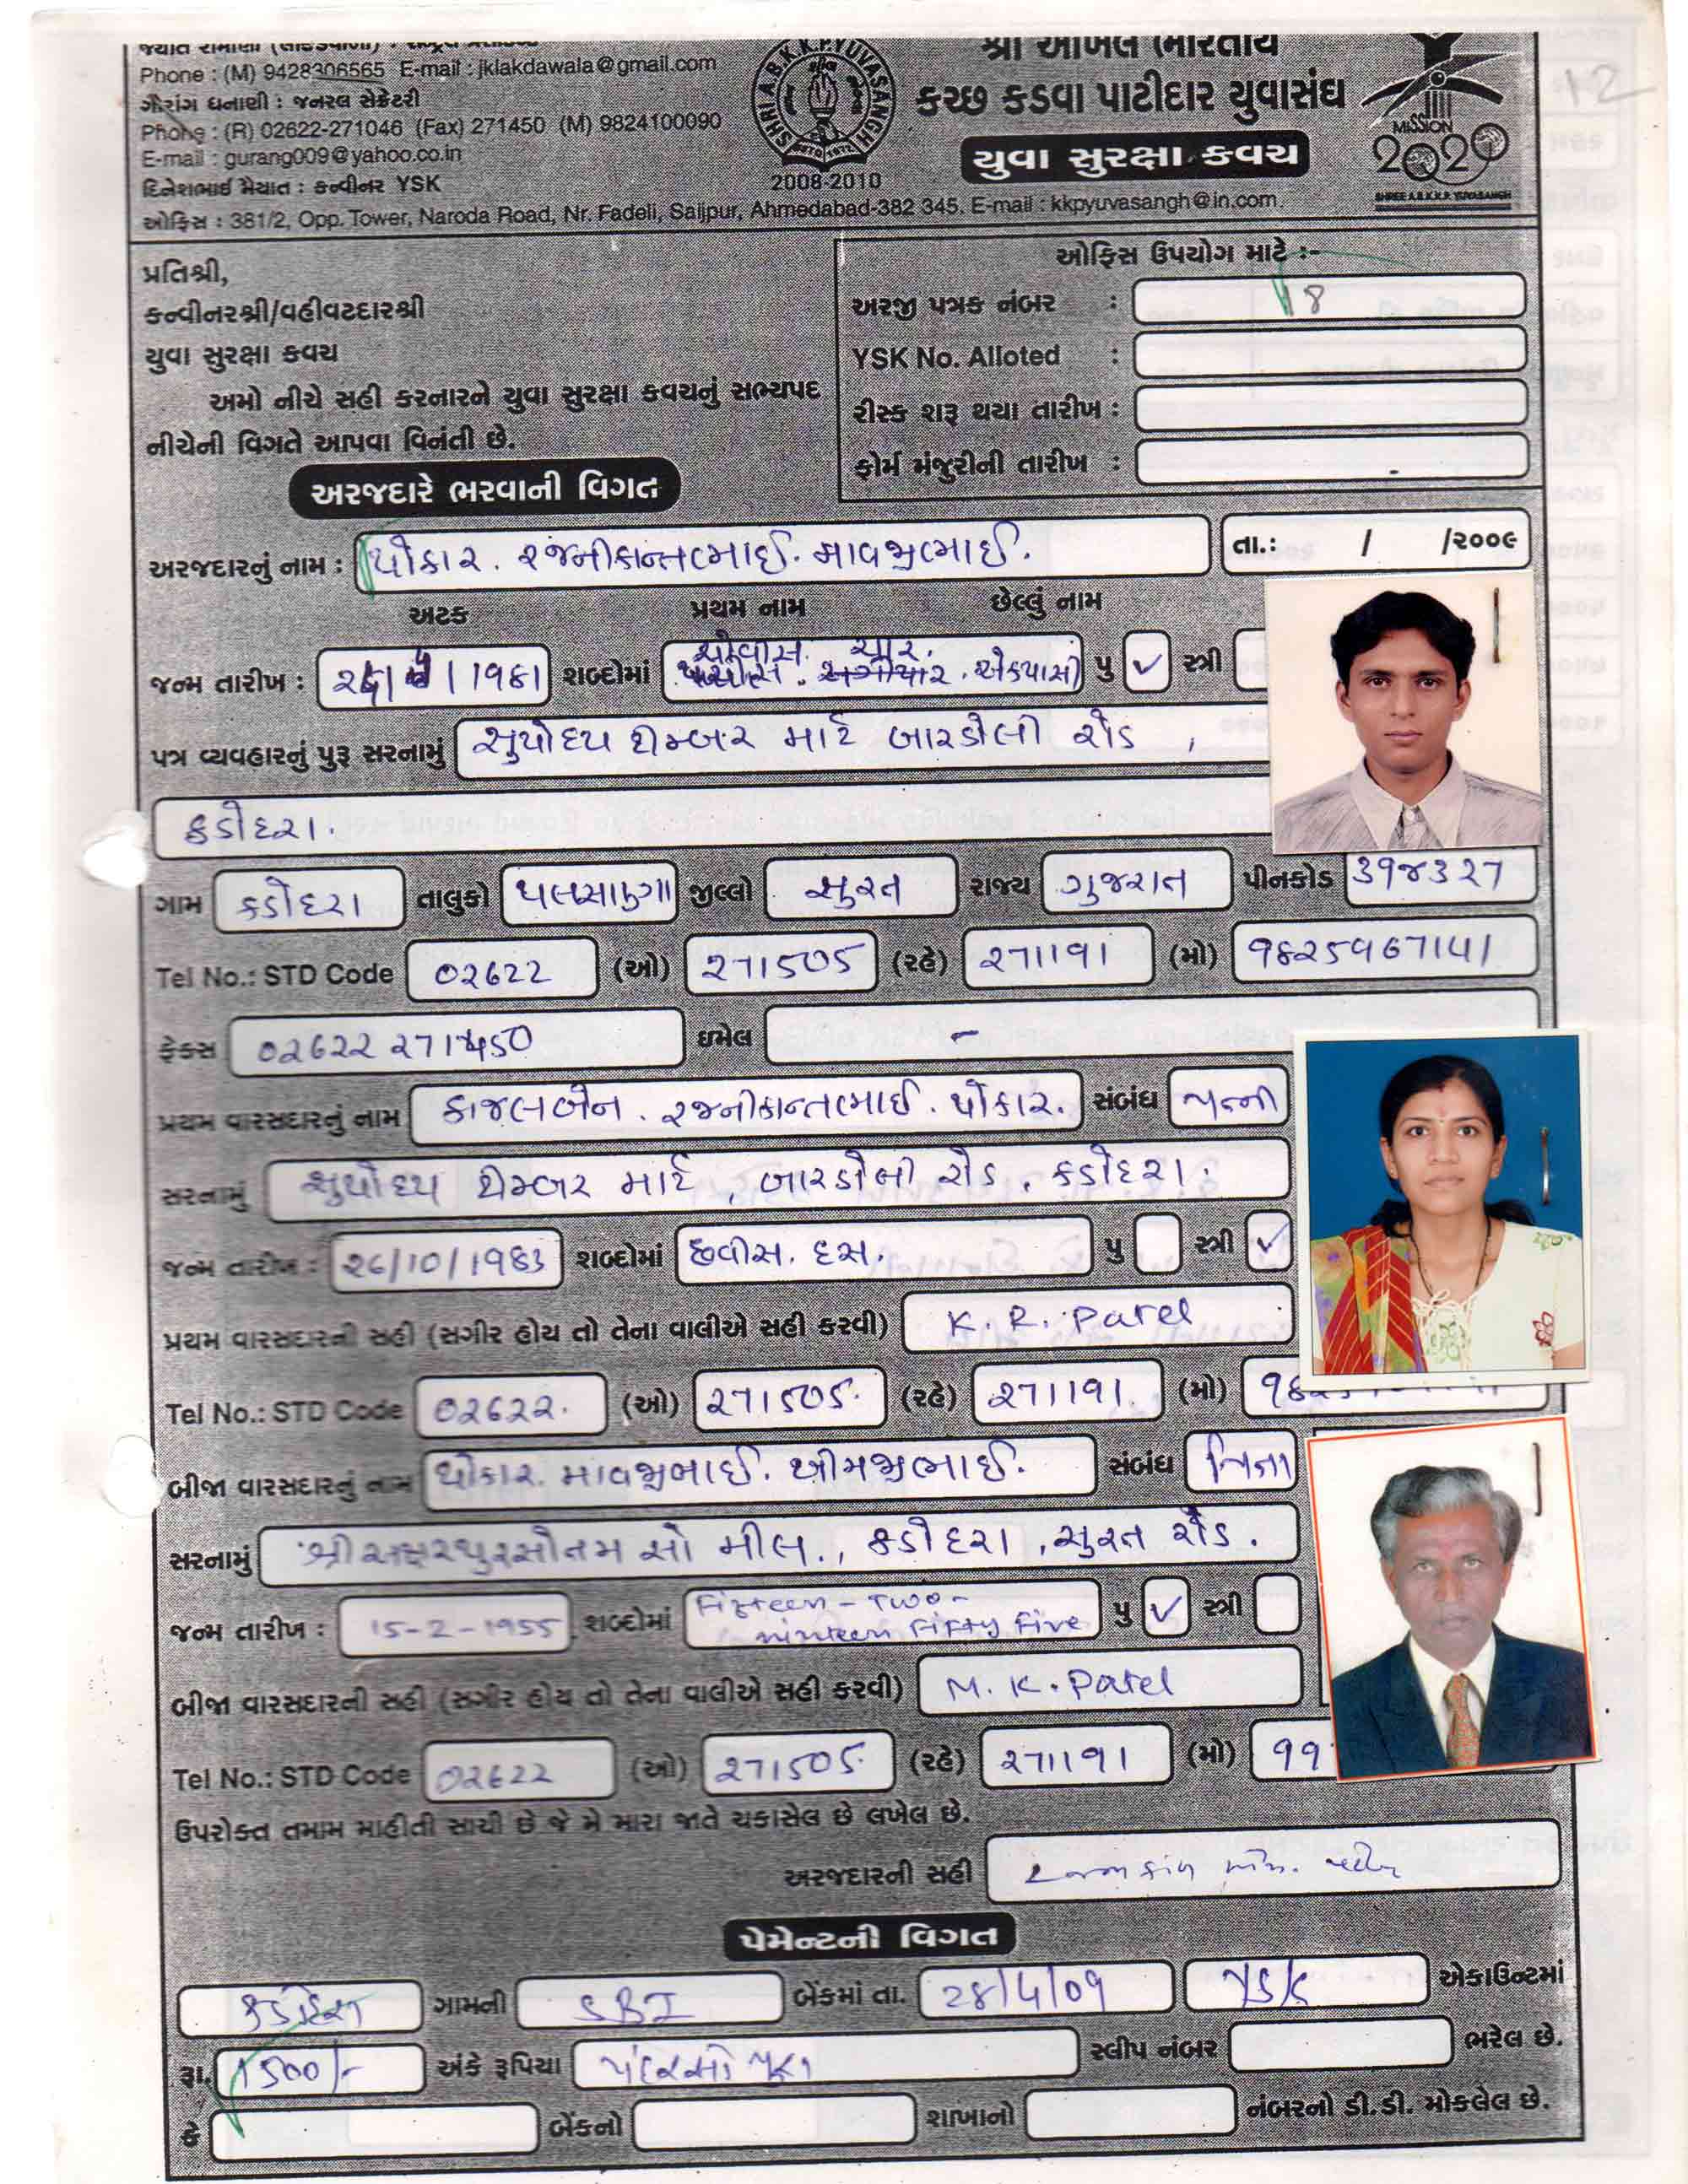 Phone : (M) 9428306565 E-mail : jklakdawala@gmail.com
ગૌરાંગ ધનાણી : જનરલ સેક્રેટરી
Phone : (R) 02622-271046 (Fax) 271450 (M) 9824100090
E-mail : gurang009@yahoo.co.in
દિનેશભાઈ મૈયાત : કન્વીનર YSK
ઓફિસ : 381/2, Opp. Tower, Naroda Road, Nr. Fadeli, Saijpur, Ahmedabad-382 345. E-mail : kkpyuvasangh@in.com.
SHRI A.B.K.K.P.YUVASANGH
2008-2010
શ્રી અખિલ ભારતીય
કચ્છ કડવા પાટીદાર યુવાસંઘ
યુવા સુરક્ષા કવચ
MISSION
2020
SHREE A.B.K.K.P. YUVASANGH
12
પ્રતિશ્રી,
કન્વીનરશ્રી/વહીવટદારશ્રી
યુવા સુરક્ષા કવચ
અમો નીચે સહી કરનારને યુવા સુરક્ષા કવચનું સભ્યપદ
નીચેની વિગતે આપવા વિનંતી છે.
ઓફિસ ઉપયોગ માટે :-
અરજી પત્રક નંબર : 18
YSK No. Alloted :
રીસ્ક શરૂ થયા તારીખ :
ફોર્મ મંજુરીની તારીખ :
અરજદારે ભરવાની વિગત
અરજદારનું નામ : પોકાર. રજનીકાન્તભાઈ. માવજીભાઈ. તા.: / /૨૦૦૯
અટક પ્રથમ નામ છેલ્લું નામ
જન્મ તારીખ : /1981 શબ્દોમાં ચોવીસ. ચાર. એકયાસી પુ ✓ સ્ત્રી
પત્ર વ્યવહારનું પુરૂ સરનામું સુર્યોદય ટીમ્બર માર્ટ બારડોલી રોડ,
કડોદરા.
ગામ કડોદરા તાલુકો પલસાણા જીલ્લો સુરત રાજ્ય ગુજરાત પીનકોડ ૩૧૪૩૨૭
Tel No.: STD Code 02622 (ઓ) 271505 (રહે) 271191 (મો) 9825967141
ફેક્સ 02622 271450 ઇમેલ -
પ્રથમ વારસદારનું નામ કાજલબેન. રજનીકાન્તભાઈ. પોકાર. સંબંધ પત્ની
સરનામું સુર્યોદય ટીમ્બર માર્ટ, બારડોલી રોડ, કડોદરા.
જન્મ તારીખ : 26/10/1983 શબ્દોમાં છવીસ. દસ. પુ સ્ત્રી ✓
પ્રથમ વારસદારની સહી (સગીર હોય તો તેના વાલીએ સહી કરવી) K. R. Patel
Tel No.: STD Code 02622. (ઓ) 271505. (રહે) 271191. (મો)
બીજા વારસદારનું નામ પોકાર. માવજીભાઈ. ખીમજીભાઈ. સંબંધ પિતા
સરનામું શ્રી અક્ષરપુરસોતમ સો મીલ., કડોદરા, સુરત રોડ.
જન્મ તારીખ : 15-2-1955 શબ્દોમાં Fifteen - Two -
ninteen Fifty Five પુ ✓ સ્ત્રી
બીજા વારસદારની સહી (સગીર હોય તો તેના વાલીએ સહી કરવી) M. K. Patel
Tel No.: STD Code 02622 (ઓ) 271505. (રહે) 271191 (મો) 99
ઉપરોક્ત તમામ માહીતી સાચી છે જે મે મારા જાતે ચકાસેલ છે લખેલ છે.
અરજદારની સહી
પેમેન્ટની વિગત
કડોદરા ગામની SBI બેંકમાં તા. 28/4/09 YSK એકાઉન્ટમાં
રૂા. 1500/- અંકે રૂપિયા પંદરસો પુરા સ્લીપ નંબર ભરેલ છે.
કે બેંકનો શાખાનો નંબરનો ડી.ડી. મોકલેલ છે.